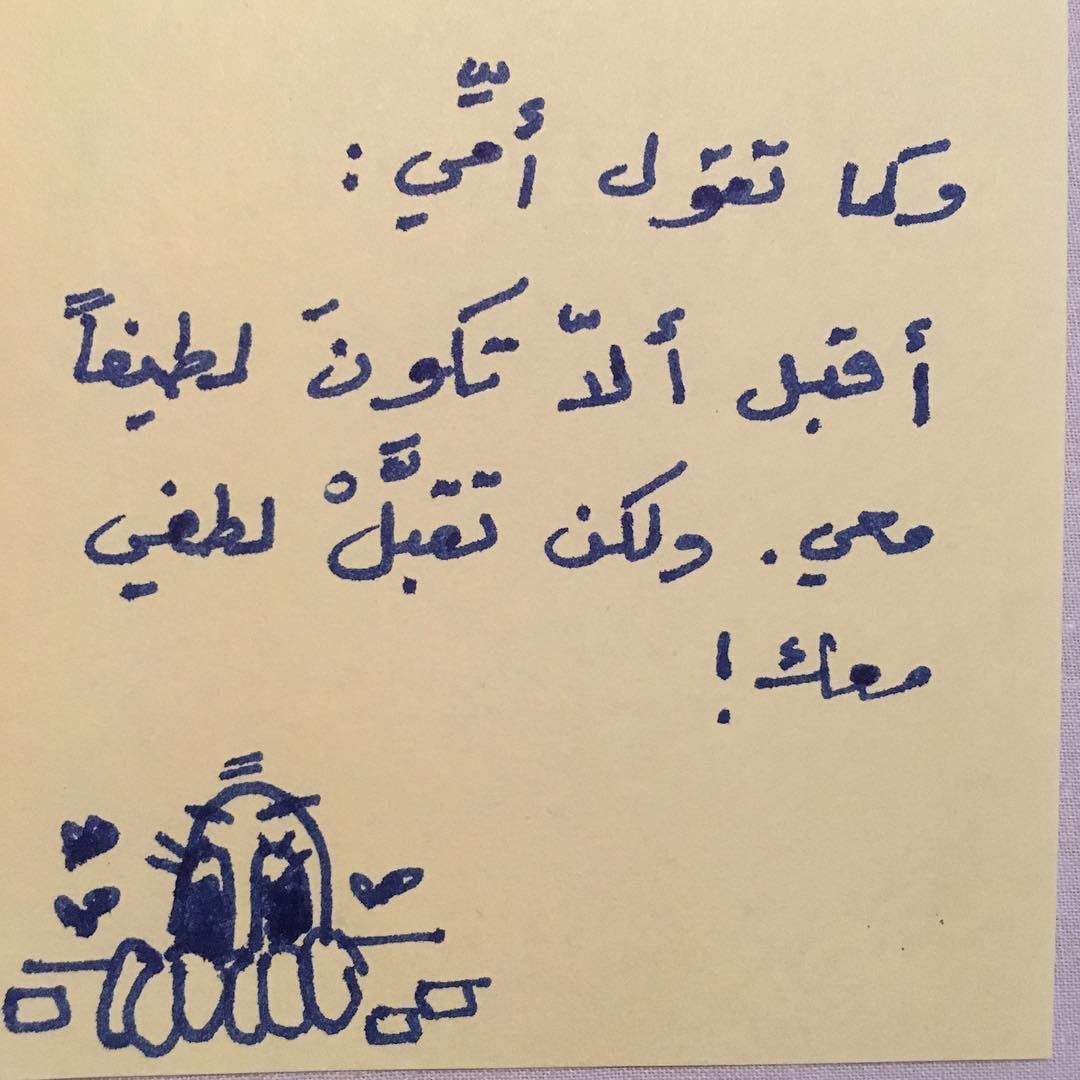 وكما تقول أمّي :
أقبل ألاّ تكونَ لطيفاً
معي . ولكن تقبَّلْ لطفي
معك !